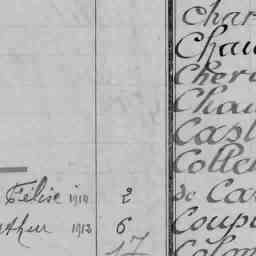 Char
Chau
Cheru
Chau
Cast
Collen
Félise 1910 2 de Car
thur 1912 6 Coupi
17 Colom